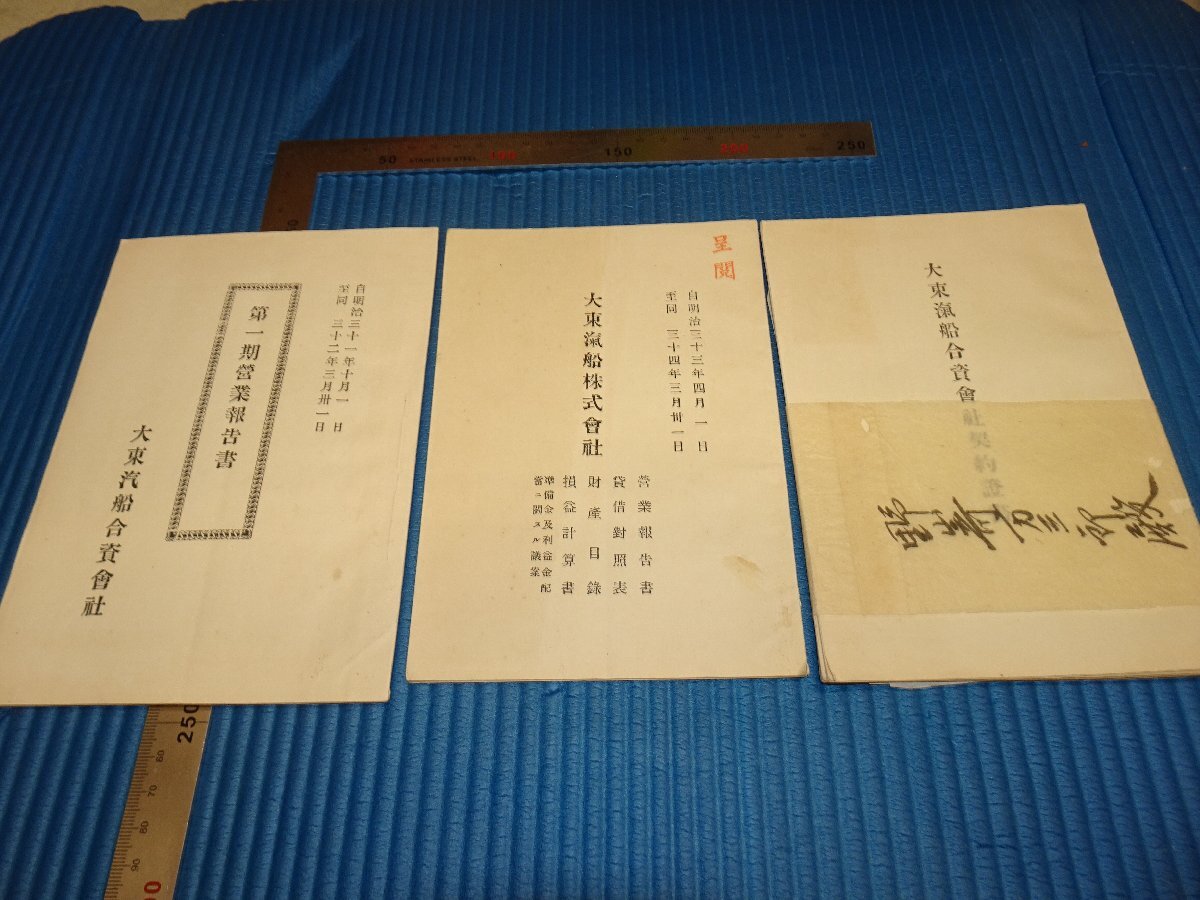 自明治三十一年十月一日
至同三十二年三月卅一日
第一期營業報告書
大東汽船合資會社
呈閲
自明治三十三年四月一日
至同三十四年三月卅一日
大東滊船株式會社
營業報告書
貸借對照表
財產目錄
損益計算書
準備金及利益金配
當ニ關スル議案
大東滊船合資會社契約證
50 STAINLESS STEEL 100 150 200 250
250